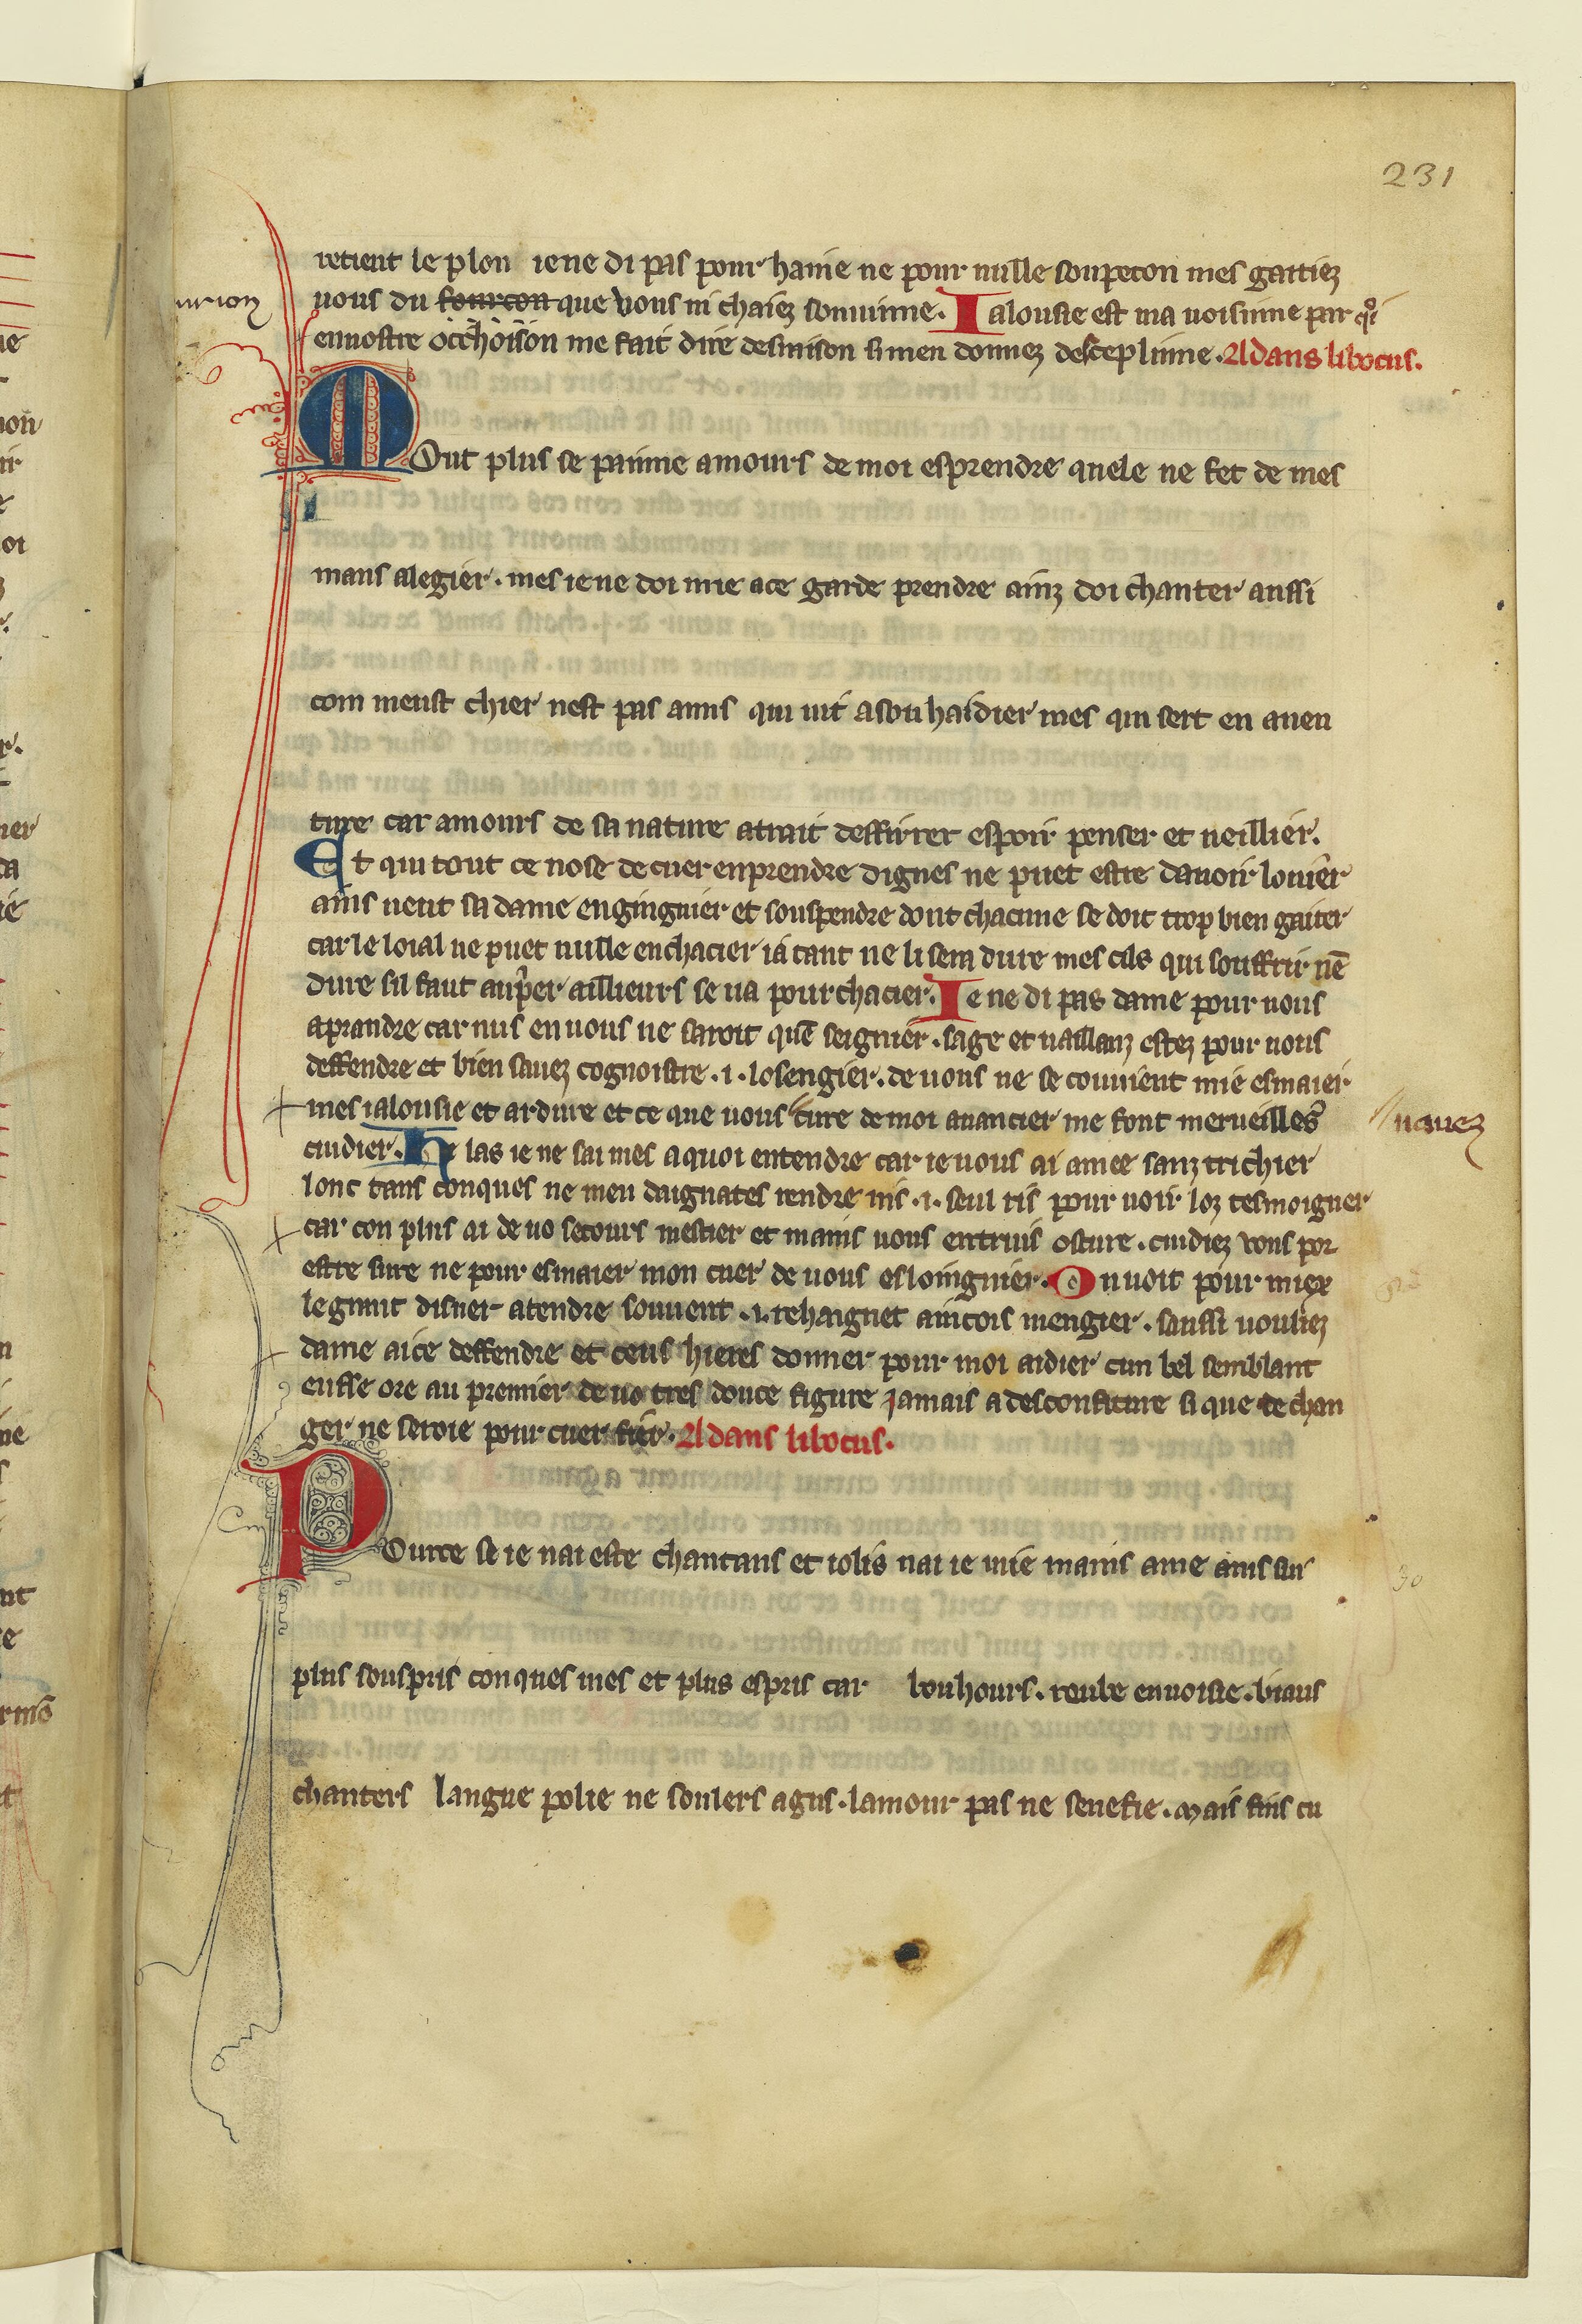 231
retient le plon ie ne di pas pour haine ne pour nulle soupecon mes gaitiez
vous du fourcon que vous ni chaiez souuinne. Ialousie est ma uoisinne par qoi
en uostre occhoison me fait dire desraison si men donnez desceplinne. Adans li bocus.
MOut plus se painne amours de moi esprendre quele ne fet de mes
maus alegier. mes ie ne doi mie a ce garde prendre ainz doi chanter aussi
com meust chier nest pas amis qui uit a souhaidier mes qui sert en auen
ture car amours de sa nature atrait dessirrer espoir penser et ueillier.
Et qui tout ce nose de cuer enprendre dignes ne puet estre dauoir louier
ains ueut sa dame engingnier et souspendre dont chacune se doit trop bien gaitier
car le loial ne puet nulle enchacier ia tant ne li sera dure mes cils qui souffrir nē
dure sil faut au p̃er aillieurs se ua pourchacier. Ie ne di pas dame pour uous
aprandre car nus en uous ne saroit quē seignier. sage et uaillanz estez pour uous
deffendre et bien sauez cognoistre .i. losengier. de uous ne se couuient mie esmaier
mes ialousie et ardure et ce que uous cure de moi auancier me font merueilles
cuidier. He las ie ne sai mes a quoi entendre car ie uous ai amee sanz trichier
lonc tans conques ne men daignates rendre nis .i. seul ris pour uoir loz tesmoigner
car con plus ai de uo secours mestier et mains uous en truis oscure. cuidiez vous por
estre sure ne pour esmaier mon cuer de uous esloingnier. On uoit pour miex
le grant disner atendre souuent .i. rehaignet aincois mengier. saussi uouliez
dame aice deffendre et ceus hieres donner pour moi aidier cun bel semblant
eusse ore au premier de uo tres douce figure jamais a desconfiture si que de chan
ger ne seroie pour cuer fier. Adans li bocus.
POurce se ie nai este chantans et iolis nai ie mie mains ame ains sui
plus souspris conques mes et plus espris car bouhours. reube enuoisie. biaus
chanters langue polie ne soulers agus. lamour pas ne senefie. mais fins cu
nauez